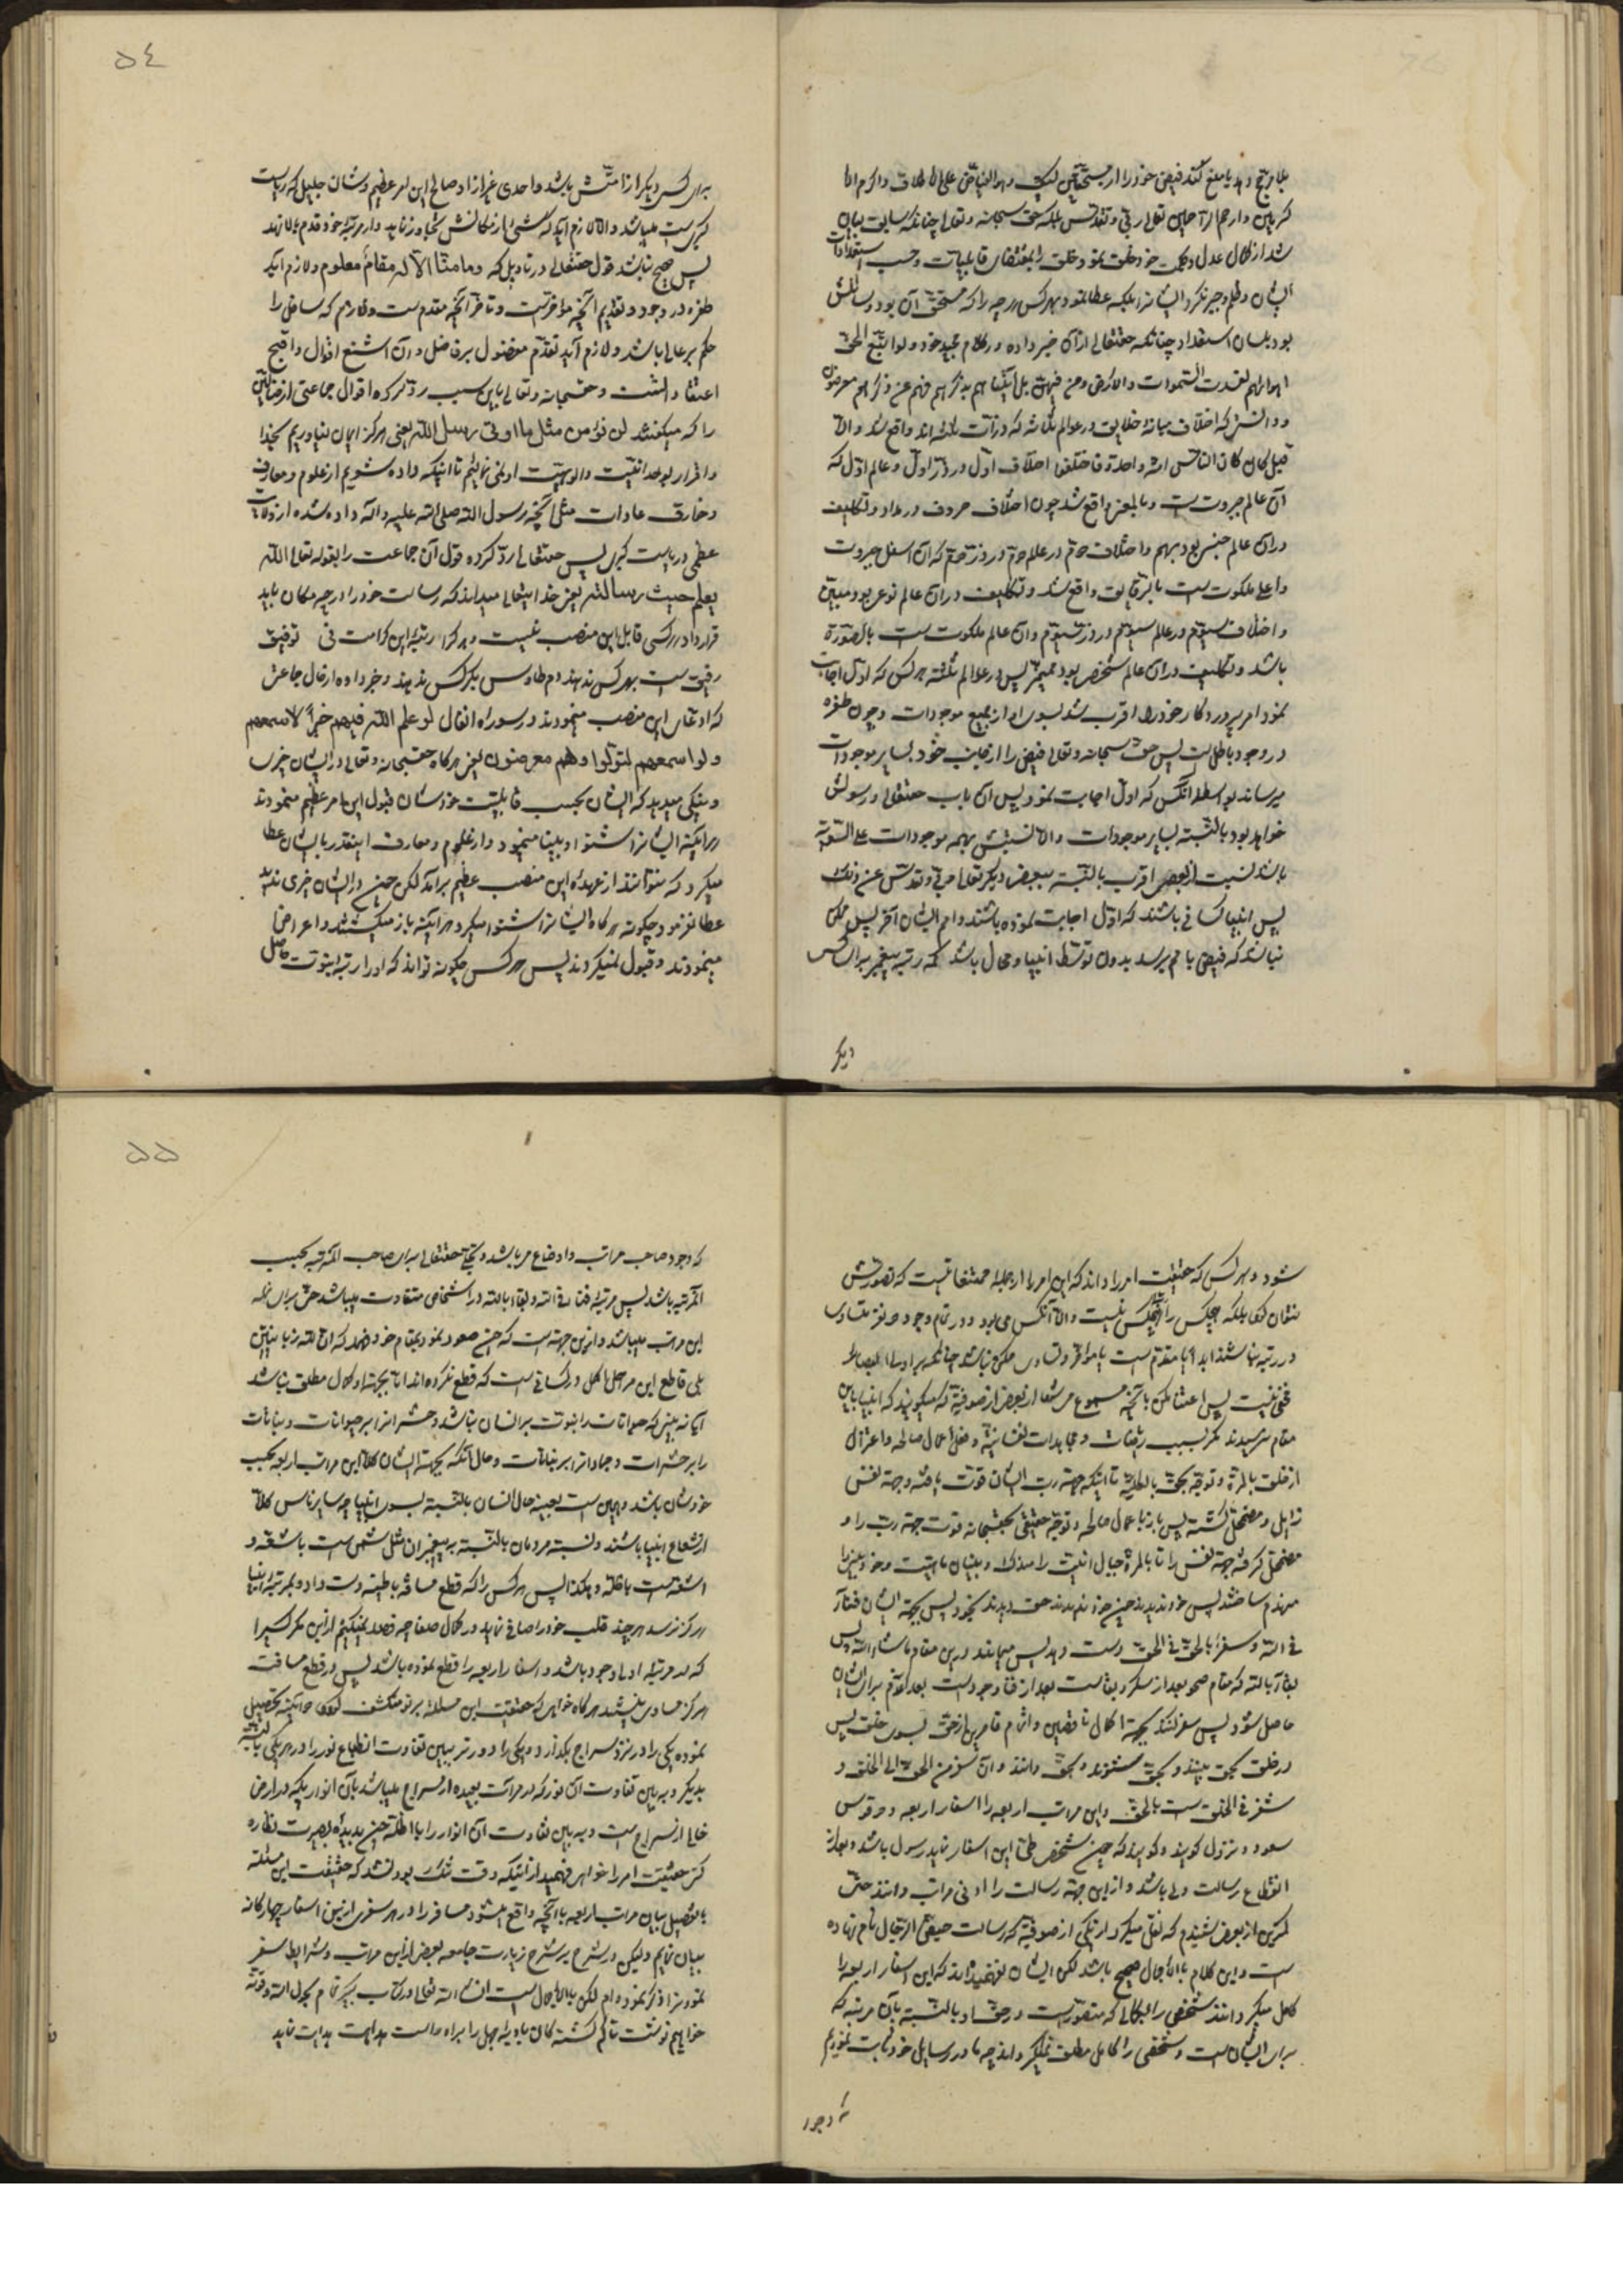 ۵٤
بلا مرجح دهد یا منع کند فیض خود را از مستحقین لیکن وهو الفیاض علی الاطلاق واکرم الا
کرمین وارحم الراحمین تعالی ربی وتقدس بلکه حق سبحانه وتعالی چنانکه سابق بیان
شد از کمال عدل وحکمت خود خلق نمود خلق را بمقتضای قابلیات وحسب استعدادات
ایشان وظلم وجبر نکرد ایشانرا بلکه عطا نمود بهر کس هر چه را که مستحق آن بود وسائلش
بود بلسان استعداد چنانکه حقتعالی از آن خبر داده در کلام مجید خود ولو اتبع الحق
اهوائهم لفسدت السموات والارض ومن فیهن بل اتیناهم بذکرهم فهم عن ذکرهم معرضون
ودانستی که اختلاف میانه خلایق در عوالم ثلاثه که ذرات ثلثه اند واقع شد والا
قبل کان کان الناس امة واحدة فاختلفوا اختلاف اول در ذر اول وعالم اول که
آن عالم جبروت است وبالمعنی واقع شد چون اختلاف حروف در مداد وتکلیف
در آن عالم جنسی بود ومبهم واختلاف دویم در عالم دویم ودر ذر دویم که آن اسفل جبروت
واعلی ملکوت است بالرقایق واقع شد وتکلیف در آن عالم نوعی بود ومبین
واختلاف سیوم در عالم سیوم ودر ذر سیوم وآن عالم ملکوت است بالصورة
باشد وتکلیف در آن عالم شخصی بود ممیز پس در عوالم ثلثه هر کس که اول اجابت
نمود امر پروردگار خود را اقرب شد بسوی او از جمیع موجودات وچون طفره
در وجود باطل است پس حق سبحانه وتعالی فیض را از جانب خود بسایر موجودات
میرساند بواسطه آنکس که اول اجابت نمود پس آن باب حقتعالی ورسولش
خواهد بود بالنسبة بسایر موجودات والا نسبتش بهمه موجودات علی السویه
باشد نسبت ببعضی اقرب بالنسبة ببعض دیگر تعالی ربی وتقدس عن ذلک
پس انبیا کسانی باشند که اول اجابت نموده باشند وامم ایشان آخر پس ممکن
نباشد که فیض بامم برسد بدون توسط انبیا ومحال باشد که رتبه پیغمبر برای کس
دیگر
برای کس دیگر از امتش باشد واحدی غیر از او صالح این امر عظیم وشان جلیل که ریاست
کبری است نمیباشد والا لازم آید که شیء از مکانش تجاوز نماید واز مرتبه خود قدم بالا نهد
پس صحیح نباشد قول حقتعالی در تاویل که وما منا الا له مقام معلوم ولازم آید
طفره در وجود وتقدیم آنچه مؤخر است وتاخر آنچه مقدم است ولازم که سافل را
حکم بر عالی باشد ولازم آید تقدم مفضول بر فاضل وآن اشنع اقوال واقبح
اعتقادات است وحقسبحانه وتعالی باین سبب رد کرده اقوال جماعتی از منافقین
را که میگفتند لن نؤمن مثل ما اوتی رسل الله یعنی هرگز ایمان نیاوریم بخدا
واقرار بوحدانیت والوهیت او نمی نمائیم تا اینکه داده شویم از علوم ومعارف
وخارق عادات مثل آنچه رسول الله صلی الله علیه وآله داده شده از ولایت
عظمی وریاست کبری پس حقتعالی رد کرده قول آن جماعت را بقوله تعالی الله
یعلم حیث رسالته یعنی خدایتعالی میداند که رسالت خود را در چه مکان باید
قرار داد هر کسی قابل این منصب نیست وهر کرا رتبه این کرامت نی توفیق
رفیقی است بهر کس ندهند دم طاوس بکرکس ندهند وخبر داده از حال جماعتی
که ادعای این منصب مینمودند در سوره انفال لو علم الله فیهم خیرا لاسمعهم
ولو اسمعهم لتولوا وهم معرضون یعنی هرگاه حقسبحانه وتعالی در ایشان خیری
ونیکی میدید که ایشان بحسب قابلیت خودشان قبول این امر عظیم مینمودند
هر آینه ایشانرا شنوا وبینا مینمود واز علوم ومعارف اینقدر بایشان عطا
میکرد که بتوانند از عهده این منصب عظیم برآیند لکن چون در ایشان خیری ندید
عطا نفرمود وچگونه هرگاه ایشانرا شنوا میکرد هر آینه باز میگشتند واعراض
مینمودند وقبول نمیکردند پس هر کس چگونه تواند که او را رتبه نبوت حاصل
۵۵
شود وهر کس که حقیقت امر را داند که این امر را از جمله ممتنعاتست که تصورش
نتوان کرد بلکه هیچکس را رتبه هیچکس نیست والا آنکس می بود ودر تمام وجود دو نفر متساوی
در رتبه نباشند ابدا یا مقدم است یا مؤخر وتساوی ممکن نباشد چنانکه بر اولی الابصار
مخفی نیست پس اعتنا مکن بآنچه مسموع میشود از بعضی از صوفیه که میگویند که انبیا باین
مقام نرسیدند مگر بسبب ریاضات ومجاهدات نفسانیه وفعل اعمال صالحه واعتزال
از خلق بالمرة وتوجه بحق بالکلیه تا اینکه جهة رب ایشان قوت یافته وجهة نفس
زایل ومضمحل گشته پس باز با عمال صالحه وتوجه حقیقی بحقسبحانه قوت جهة رب را و
مضمحل کرد جهة نفس را تا بالمرة جبال انیت را مندک وبنیان ماهیت وخودبینی را
منهدم ساختند پس خود ندیدند چون خود ندیدند حق دیدند بخود پس بجهة ایشان فنا
فی الله وسفر بالحق فی الحق دست دهد پس میمانند در این مقام ما شاء الله پس
بقا بالله که مقام صحو بعد از سکر وبقاست بعد از فنا ووجود است بعد از عدم برای ایشان
حاصل شود پس سفر کنند بجهة اکمال ناقصین واتمام قاصرین از حق بسوی خلق پس
در خلق بحق بینند وبحق شنوند وبحق دانند وآن سفر من الحق الی الخلق و
سفر فی الخلق است بالحق واین مراتب اربعه را اسفار اربعه ودو قوس
صعود ونزول گویند وگویند که چون شخصی طی این اسفار نماید رسول باشد وبعد از
انقطاع رسالت ولی باشد واز این جهة رسالت را ادنی مراتب دانند حتی
کمترین از بعضی شنیدم که نقل میکرد از یکی از صوفیه که رسالت حیض الرجال نام نهاده
است واین کلام بالاجمال صحیح باشد لکن ایشان نفهمیدند که این اسفار اربعه را
کامل میکردانند شخصی را بکمالی که متصور است در حق او بالنسبة بآن مرتبه که
برای ایشان است وشخصی را کامل مطلق نمیگرداند چه ما در رسایل خود ثابت نمودیم
که وجود
که وجود صاحب مراتب واوضاع میباشد وتجلی حقتعالی برای صاحب آنمرتبه بحسب
آنمرتبه باشد پس مرتبه فنا فی الله وبقا بالله در اشخاص متفاوت میباشد حتی برای نمله
این مراتب میباشد وازین جهة است که چون صعود نمود بمقام خود فهمد که ان لله زبانیتین
بلی قاطع این مراحل اکمل از کسانی است که قطع نکرده اند اما بجهة او کمال مطلق نباشد
آیا نه بینی که حیوانات را نبوت بر انسان نباشد وحشراترا بر حیوانات ونباتات
را بر حشرات وجماداترا بر نباتات وحال آنکه بجهة ایشان کلا این مراتب اربعه بحسب
خودشان باشد وهمین است بعینه حال انسان بالنسبة بسوی انبیا چه سایر ناس کلا
از شعاع انبیا باشند ونسبة مردمان بالنسبة بر پیغمبران مثل شمس است باشعه و
اشعه است باظله وهکذا پس هر کس را که قطع مسافة باطنیه دست داد بمرتبه انبیا
هرگز نرسد هر چند قلب خود را صافی نماید در کمال صفا چه قصد نمیکنیم ازین مگر کسیرا
که در مرتبه ادنی وجود باشد واسفار اربعه را قطع نموده باشد پس در قطع مسافت
هرگز مساوی نباشند هرگاه خواهی که حقیقت این مسئله بر تو منکشف گردد دو آینه تحصیل
نموده یکی را در نزد سراج بگذار ودیگری را دورتر ببین تفاوت انطباع نور را در هر یکی بالنسبه
بدیگر وببین تفاوت آن نور که در مرآت بعیده از سراج میباشد بآن انوار یکه در ارض
خالی از سراج است وببین تفاوت آن انوار را با اظله چون بدیده بصیرت نظاره
کنی حقیقت امر را خواهی فهمید از آنیکه وقت تنگ بود نشد که حقیقت این مسئله
بالتفصیل بیان مراتب اربعه با آنچه واقع میشود مسافر را در هر سفری ازین اسفار چهارگانه
بیان نمایم ولیکن در شرح بر شرح زیارت جامعه بعضی ازین مراتب وشرایط سفر
نمودنرا ذکر نموده ام لکن بالاجمال است انشاء الله تعالی در کتاب دیگر تمام بحول الله وقوته
خواهیم نوشت تا گم گشتگان بادیه جهل را براه راست هدایت نماید